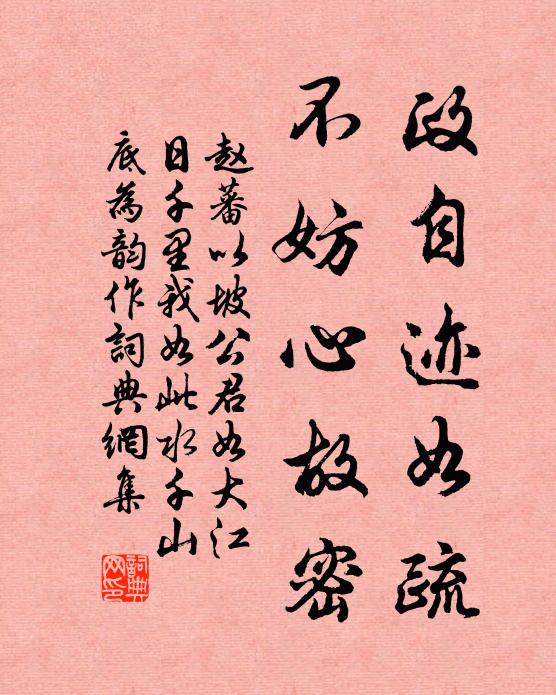 政自迹如疏
不妨心故密
赵蕃以坡公君如大江
日千里我如此水千山
底為韵作詞典網集
詞典網印